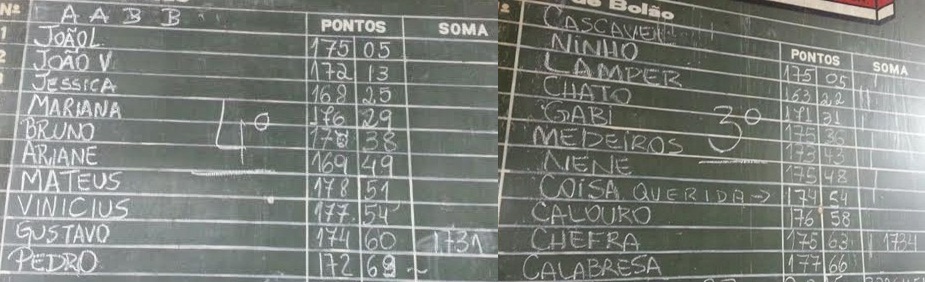 Nº A A B B PONTOS SOMA
1 JOÃO L 175 05
2 JOÃO V 172 13
JESSICA 168 25
MARIANA 176 29
BRUNO 38
4º
ARIANE 169 49
MATEUS 178 51
VINICIUS 177 54
GUSTAVO 174 60 1731
PEDRO 172 69
Bolão
CASCAVEL PONTOS SOMA
NINHO 175 05
LAMPER 163 22
CHATO 171 31
GABI 175 36
3º
MEDEIROS 173 43
NENE 175 48
COISA QUERIDA → 174 54
CALOURO 176 58
CHEFRA 175 63 1734
CALABRESA 177 66